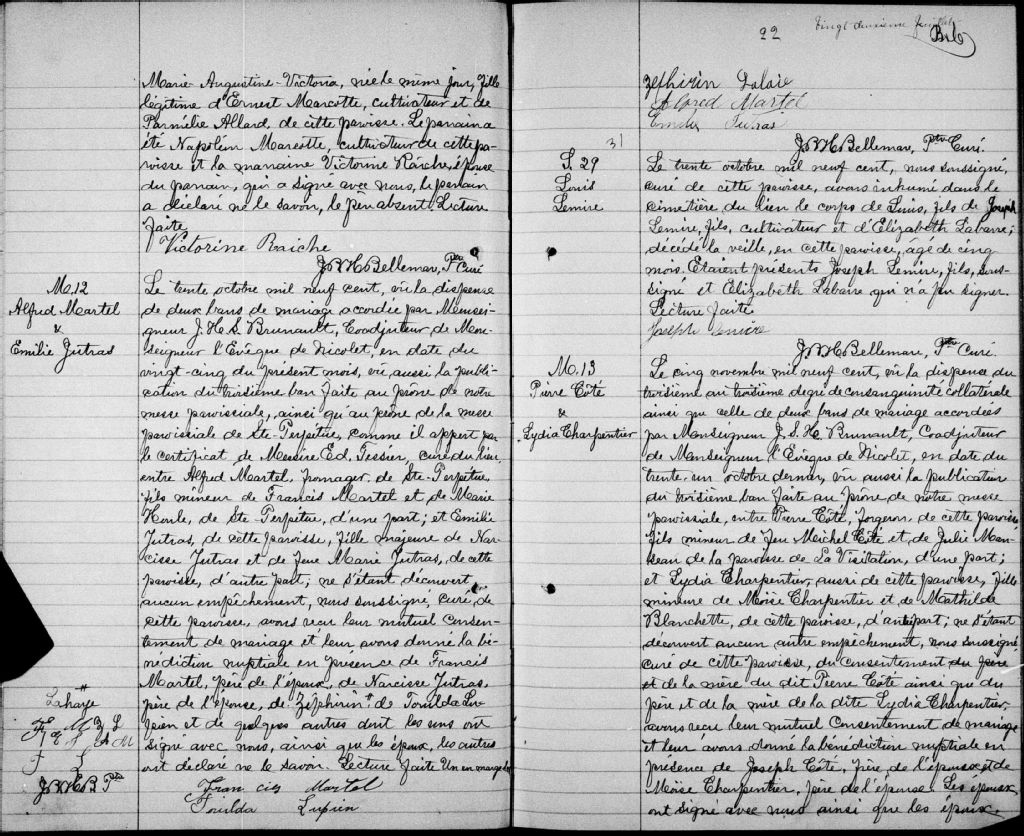 Marie-Augustine-Victoria, née le même jour, fille
légitime d'Ernest Marcotte, cultivateur et de
Parmélie Allard, de cette paroisse. Le parrain a
été Napoléon Marcotte, cultivateur de cette pa-
roisse et la marraine Victorine Raiche, épouse
du parrain, qui a signé avec nous, le parrain
a déclaré ne le savoir, le père absent. Lecture
faite.
Victorine Raiche
J.B.H. Bellemare, Ptre Curé
M. 12
Alfred Martel
&
Emilie Jutras
Le trente octobre mil neuf cent, vu la dispense
de deux bans de mariage accordée par Monsei-
gneur J. H. S. Brunault, Coadjuteur de Mon-
seigneur l'Evêque de Nicolet, en date du
vingt-cinq du présent mois, vu aussi la publi-
cation du troisième ban faite au prône de notre
messe paroissiale, ainsi qu'au prône de la messe
paroissiale de Ste-Perpétue, comme il appert par
le certificat de Messire Ed. Tessier, curé du lieu,
entre Alfred Martel, fromager, de Ste-Perpétue,
fils mineur de Francis Martel et de Marie
Houle, de Ste-Perpétue, d'une part; et Emilie
Jutras, de cette paroisse, fille majeure de Nar-
cisse Jutras et de feue Marie Jutras, de cette
paroisse, d'autre part; ne s'étant découvert
aucun empêchement, nous soussigné, curé, de
cette paroisse, avons reçu leur mutuel consen-
tement de mariage et leur avons donné la bé-
nédiction nuptiale en présence de Francis
Martel, père de l'époux, de Narcisse Jutras,
père de l'épouse, de Zéphirin # de Tonilda Lu-
pien et de quelques autres dont les uns ont
signé avec nous, ainsi que les époux, les autres
ont déclaré ne le savoir. Lecture faite Un en marge bon
# Lahaye
F. M Z L
A M
J.B.H.B Ptre
Francis Martel
Tonilda Lupien
22
Vingt deuxième feuillet
Zéphirin Lalaie
Alfred Martel
Emilie Jutras
J.B.H. Bellemare, Ptre Curé.
31
S. 29
Louis
Lemire
Le trente octobre mil neuf cent, nous soussigné,
curé de cette paroisse, avons inhumé dans le
cimetière du lieu le corps de Louis, fils de Joseph
Lemire, fils, cultivateur et d'Elizabeth Labarre;
décédé la veille, en cette paroisse, âgé de cinq
mois. Etaient présents Joseph Lemire, fils, sous-
signé et Elizabeth Labarre qui n'a pu signer.
Lecture faite
Joseph Lemire
J.B.H. Bellemare, Ptre Curé.
M. 13
Pierre Côté
&
Lydia Charpentier
Le cinq novembre mil neuf cent, vu la dispense du
troisième au troisième degré de consanguinité collatérale
ainsi que celle de deux bans de mariage accordées
par Monseigneur J. S. H. Brunault, Coadjuteur
de Monseigneur l'Evêque de Nicolet, en date du
trente-un octobre dernier, vu aussi la publication
du troisième ban faite au prône de notre messe
paroissiale, entre Pierre Côté, forgeron, de cette paroisse
fils mineur de feu Michel Côté et de Julie Man-
seau de la paroisse de La Visitation, d'une part;
et Lydia Charpentier, aussi de cette paroisse, fille
mineure de Moïse Charpentier et de Mathilde
Blanchette, de cette paroisse, d'autre part; ne s'étant
découvert aucun autre empêchement, nous soussigné
curé de cette paroisse, du consentement du père
et de la mère du dit Pierre Côté ainsi que du
père et de la mère de la dite Lydia Charpentier,
avons reçu leur mutuel consentement de mariage
et leur avons donné la bénédiction nuptiale en
présence de Joseph Côté, frère de l'époux et de
Moïse Charpentier, père de l'épouse. Les époux
ont signé avec nous ainsi que les époux.